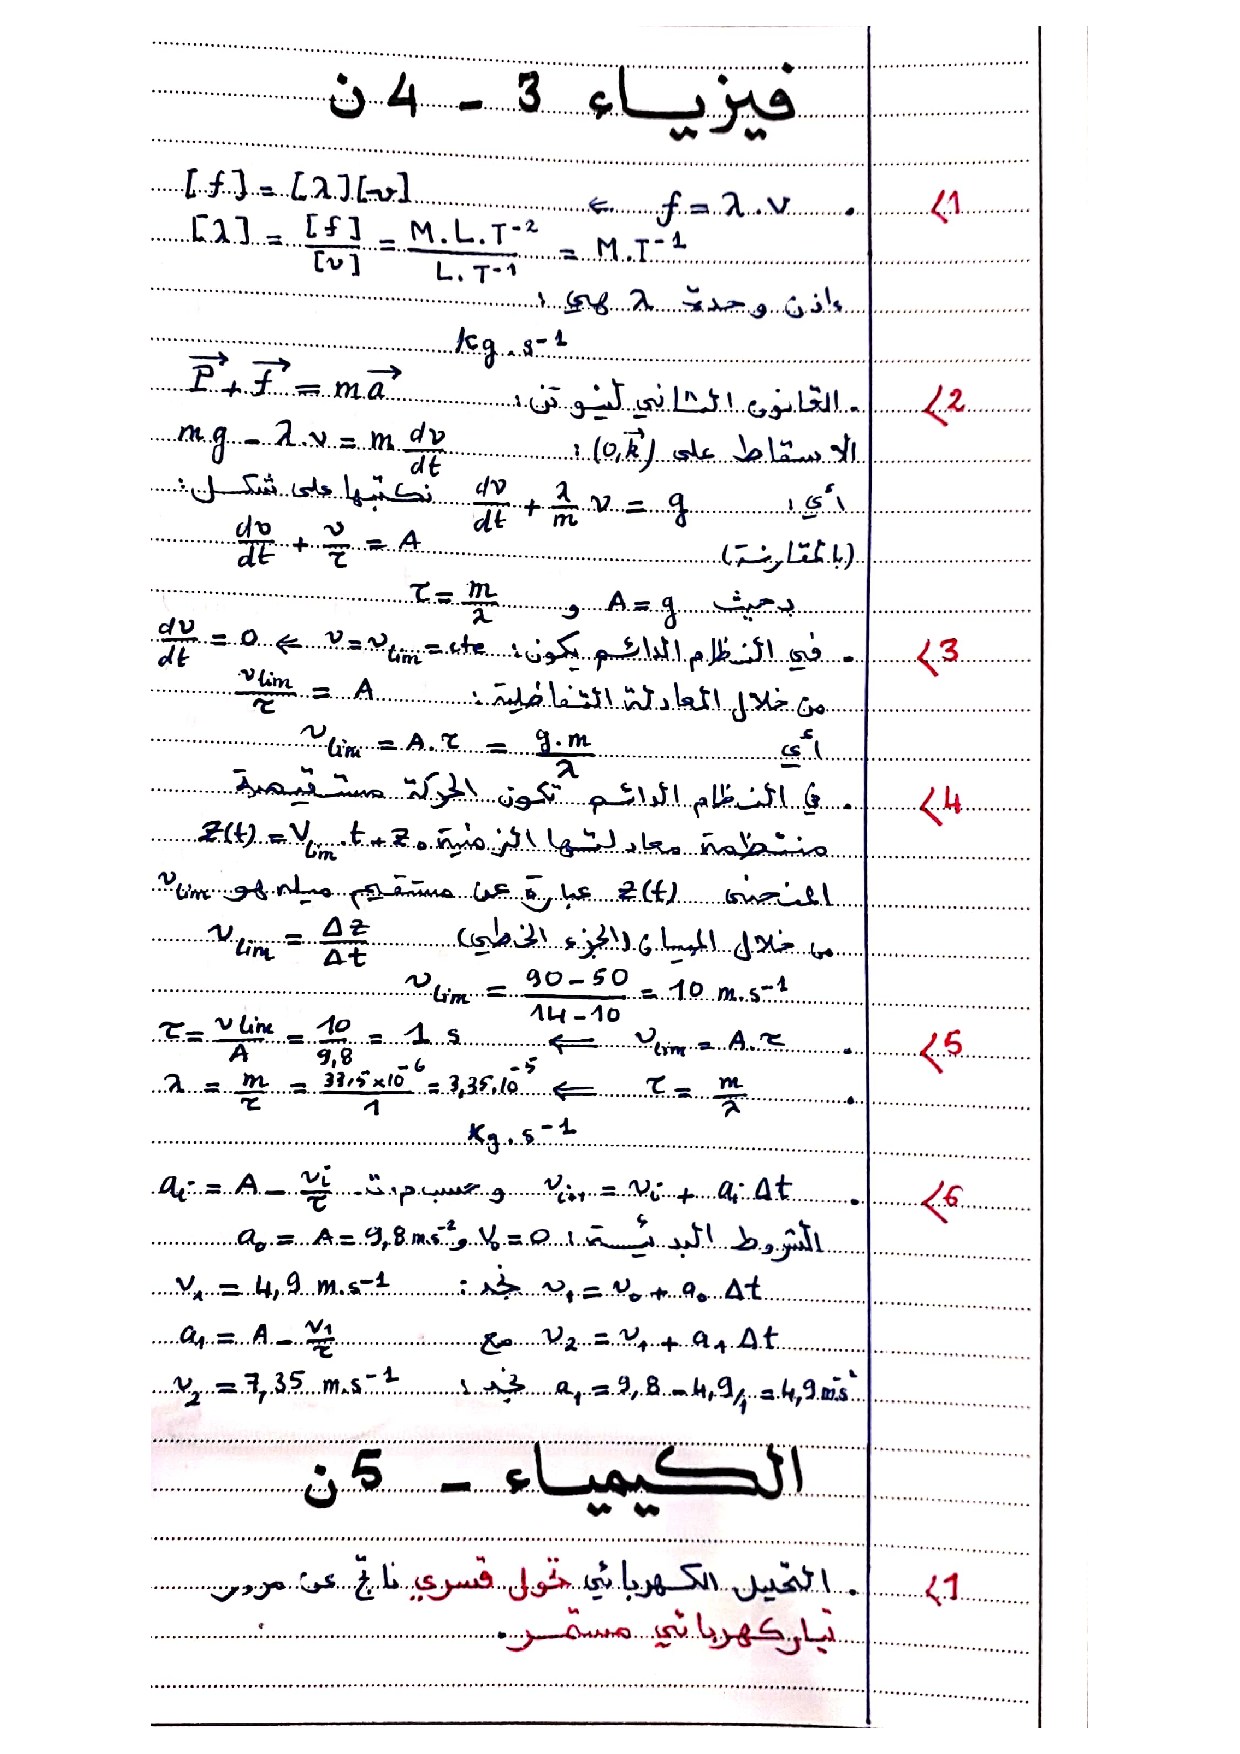 فيزياء 3 - 4 ن
1> . f = λ.v ⇐ [f] = [λ][v]
[λ] = [f]/[v] = M.L.T⁻²/L.T⁻¹ = M.T⁻¹
إذن وحدة λ هي :
kg.s⁻¹
2> . القانون الثاني لنيوتن : P⃗ + f⃗ = ma⃗
الاسقاط على (O,k⃗) : mg - λ.v = m dv/dt
أي : dv/dt + λ/m v = g نكتبها على شكل :
(بالمقارنة) dv/dt + v/τ = A
بحيث A = g و τ = m/λ
3> . في النظام الدائم يكون : v = v_lim = cte ⇐ dv/dt = 0
من خلال المعادلة التفاضلية : v_lim/τ = A
أي v_lim = A.τ = g.m/λ
4> . في النظام الدائم تكون الحركة مستقيمية
منتظمة معادلتها الزمنية z(t) = V_lim.t + z₀
المنحنى z(t) عبارة عن مستقيم ميله هو v_lim
من خلال المبيان (الجزء الخطي) v_lim = Δz/Δt
v_lim = 90-50/14-10 = 10 m.s⁻¹
5> . v_lim = A.τ ⇐ τ = v_lim/A = 10/9,8 = 1 s
. τ = m/λ ⇐ λ = m/τ = 33,5×10⁻⁶/1 = 3,35.10⁻⁵
Kg.s⁻¹
6> . v_i+1 = v_i + a_i Δt و حسب م.ت. a_i = A - v_i/τ
الشروط البدئية : V₀ = 0 و a₀ = A = 9,8 m.s⁻²
v₁ = v₀ + a₀ Δt نجد : v₁ = 4,9 m.s⁻¹
v₂ = v₁ + a₁ Δt مع a₁ = A - v₁/τ
a₁ = 9,8 - 4,9/1 = 4,9 m.s⁻² نجد : v₂ = 7,35 m.s⁻¹
الكيمياء - 5 ن
1> . التحليل الكهربائي تحول قسري ناتج عن مرور
تيار كهربائي مستمر .